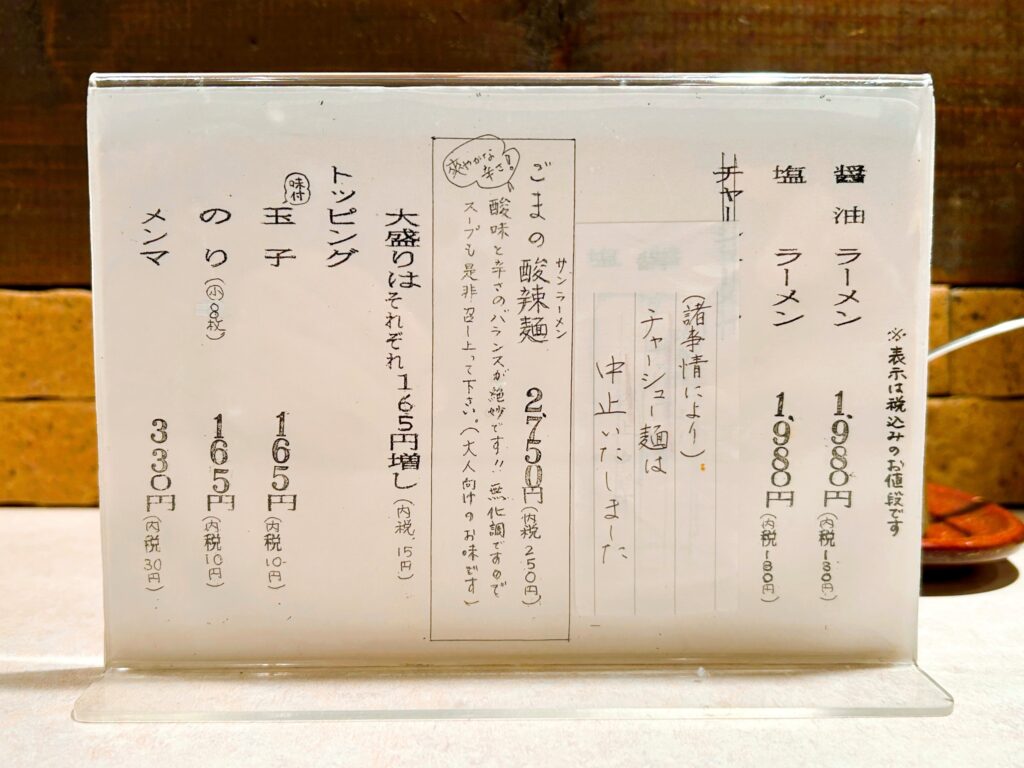 ※表示は税込みのお値段です
醤油ラーメン 1,980円(内税180円)
塩ラーメン 1,980円(内税180円)
チャー
(諸事情により)
チャーシュー麺は
中止いたしました
サンラーメン
ごまの酸辣麺 2,750円(内税250円)
爽やかな辛さ!!
酸味と辛さのバランスが絶妙です!!無化調ですので
スープも是非召し上って下さい。(大人向けのお味です)
大盛りはそれぞれ165円増し(内税15円)
トッピング
味付
玉子 165円(内税10円)
のり(小8枚) 165円(内税10円)
メンマ 330円(内税30円)